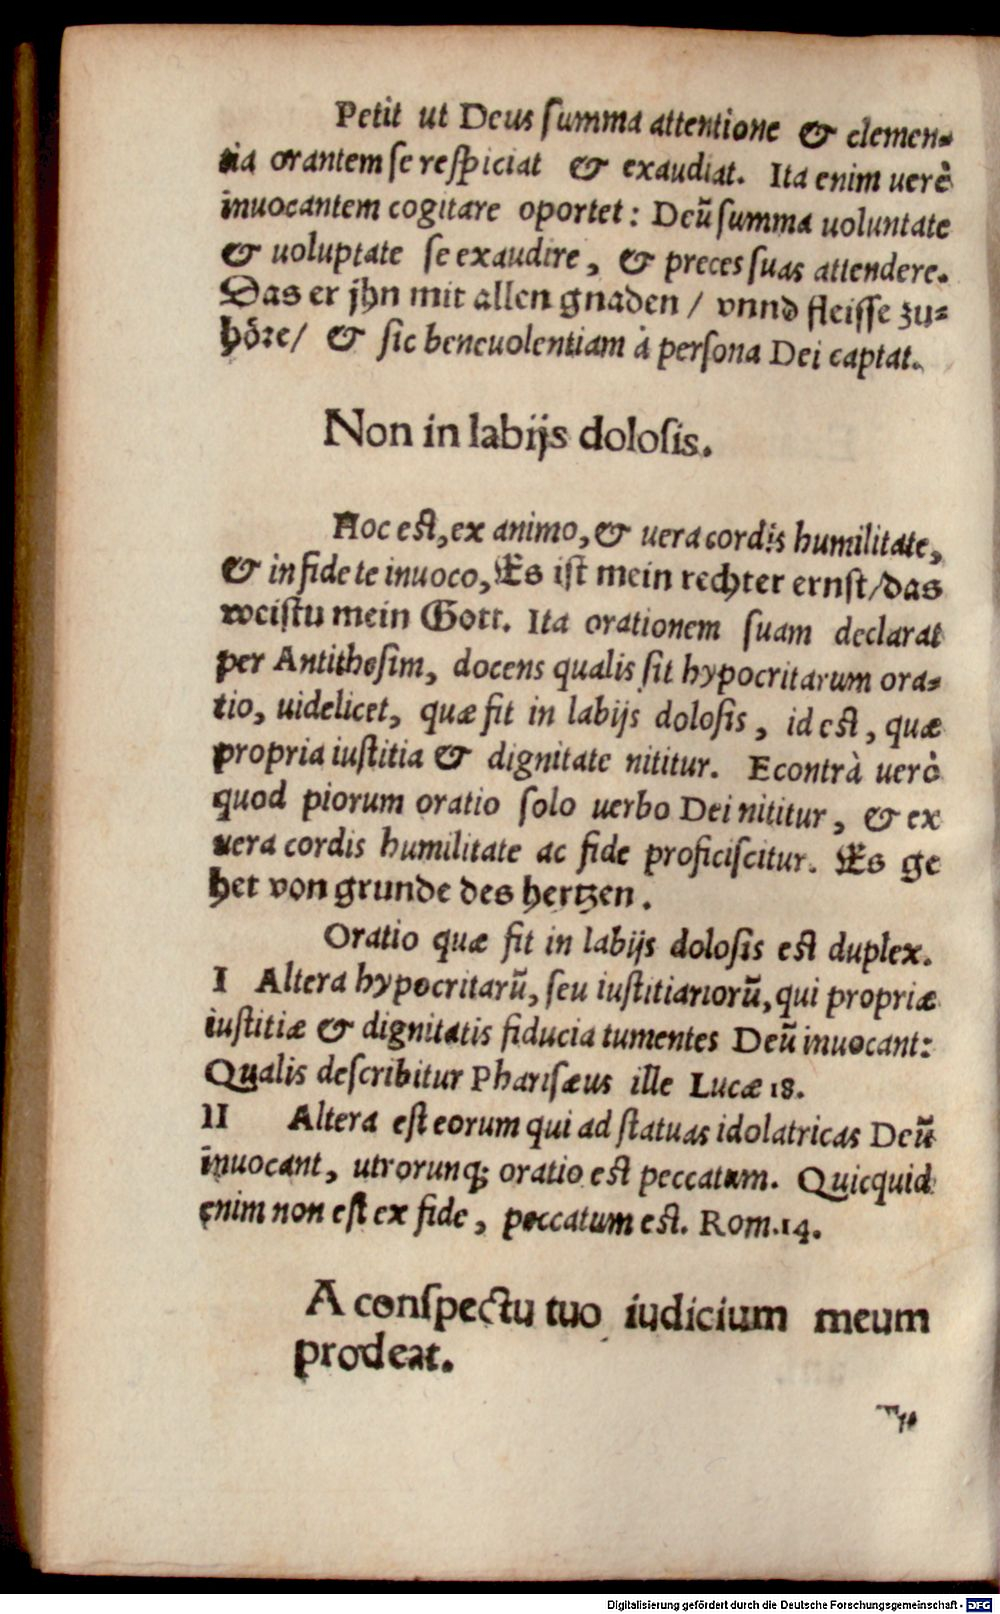 Petit ut Deus ſumma attentione & clemen⸗
tia orantem ſe reſpiciat & exaudiat. Ita enim uerè
inuocantem cogitare oportet: Deũ ſumma uoluntate
& uoluptate ſe exaudire, & preces ſuas attendere.
Das er jhn mit allen gnaden / vnnd fleiſſe zu⸗
höre/ & ſic beneuolentiam à perſona Dei captat.
Non in labijs doloſis.
Hoc eſt, ex animo, & uera cordis humilitate,
& in fide te inuoco, Es iſt mein rechter ernſt/das
weiſtu mein Gott. Ita orationem ſuam declarat
per Antitheſim, docens qualis ſit hypocritarum ora⸗
tio, uidelicet, quæ fit in labijs doloſis, id eſt, quæ
propria iuſtitia & dignitate nititur. Econtrà uerò
quod piorum oratio ſolo uerbo Dei nititur, & ex
uera cordis humilitate ac fide proficiſcitur. Es ge
het von grunde des hertzen.
Oratio quæ fit in labijs doloſis eſt duplex.
I Altera hypocritarũ, ſeu iuſtitiariorũ, qui propriæ
iuſtitiæ & dignitatis fiducia tumentes Deũ inuocant:
Qualis deſcribitur Phariſæus ille Lucæ 18.
II Altera eſt eorum qui ad ſtatuas idolatricas Deũ
inuocant, utrorunq; oratio eſt peccatum. Quicquid
enim non eſt ex fide, peccatum eſt. Rom.14.
A conſpectu tuo iudicium meum
prodeat.
Digitalisierung gefördert durch die Deutsche Forschungsgemeinschaft - DFG